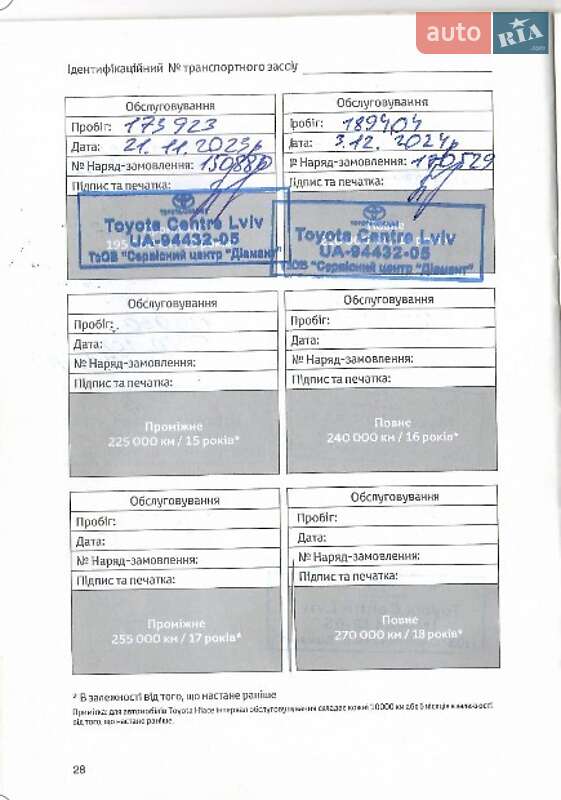 auto RIA.com
Ідентифікаційний № транспортного засобу
Обслуговування
Пробіг: 173923
Дата: 21.11.2023р
№ Наряд-замовлення:
Підпис та печатка:
TOYOTA
Toyota Centre Lviv
UA-94432-05
ТзОВ "Сервісний центр "Діамант"
Обслуговування
Пробіг: 189404
Дата: 3.12.2024р
№ Наряд-замовлення: 170529
Підпис та печатка:
TOYOTA
Toyota Centre Lviv
UA-94432-05
ТзОВ "Сервісний центр "Діамант"
Обслуговування
Пробіг:
Дата:
№ Наряд-замовлення:
Підпис та печатка:
Проміжне
225 000 км / 15 років*
Обслуговування
Пробіг:
Дата:
№ Наряд-замовлення:
Підпис та печатка:
Повне
240 000 км / 16 років*
Обслуговування
Пробіг:
Дата:
№ Наряд-замовлення:
Підпис та печатка:
Проміжне
255 000 км / 17 років*
Обслуговування
Пробіг:
Дата:
№ Наряд-замовлення:
Підпис та печатка:
Повне
270 000 км / 18 років*
* В залежності від того, що настане раніше
Примітка: для автомобілів Toyota Hiace інтервал обслуговування складає кожні 10000 км або 6 місяців в залежності
від того, що настане раніше.
28